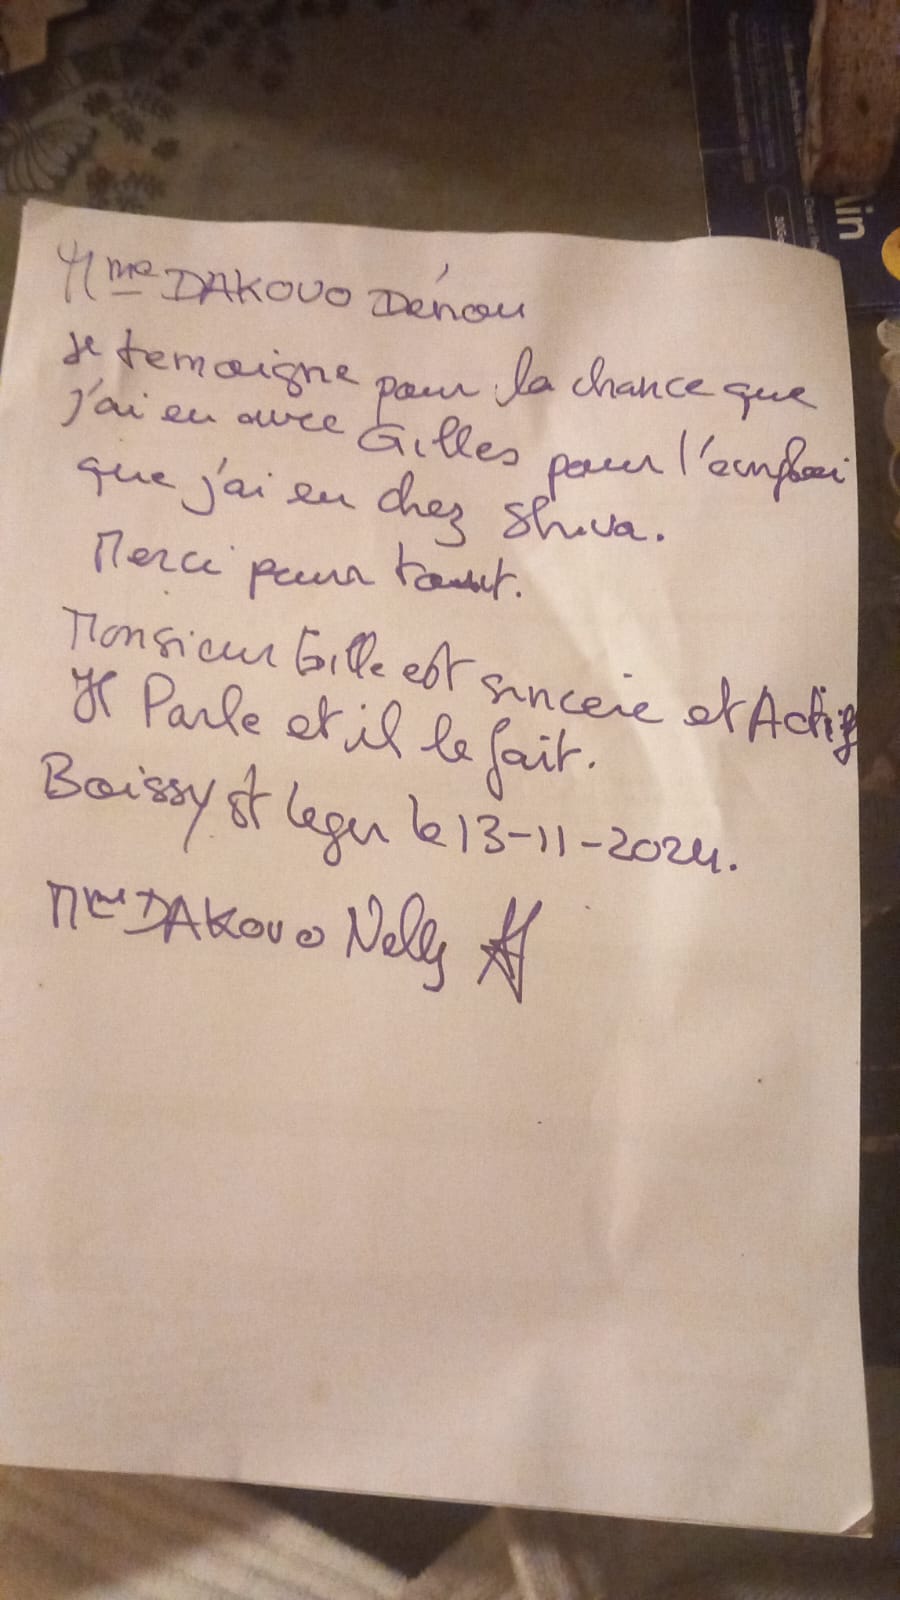 Mme DAKOVO Dénou
Je temoigne pour la chance que
j'ai eu avec Gilles pour l'emploi
que j'ai eu chez Shiva.
Merci pour tout.
Monsieur Gille est sincere et Actif
Il Parle et il le fait.
Boissy St Leger le 13-11-2024.
Mme DAKOVO Nelly